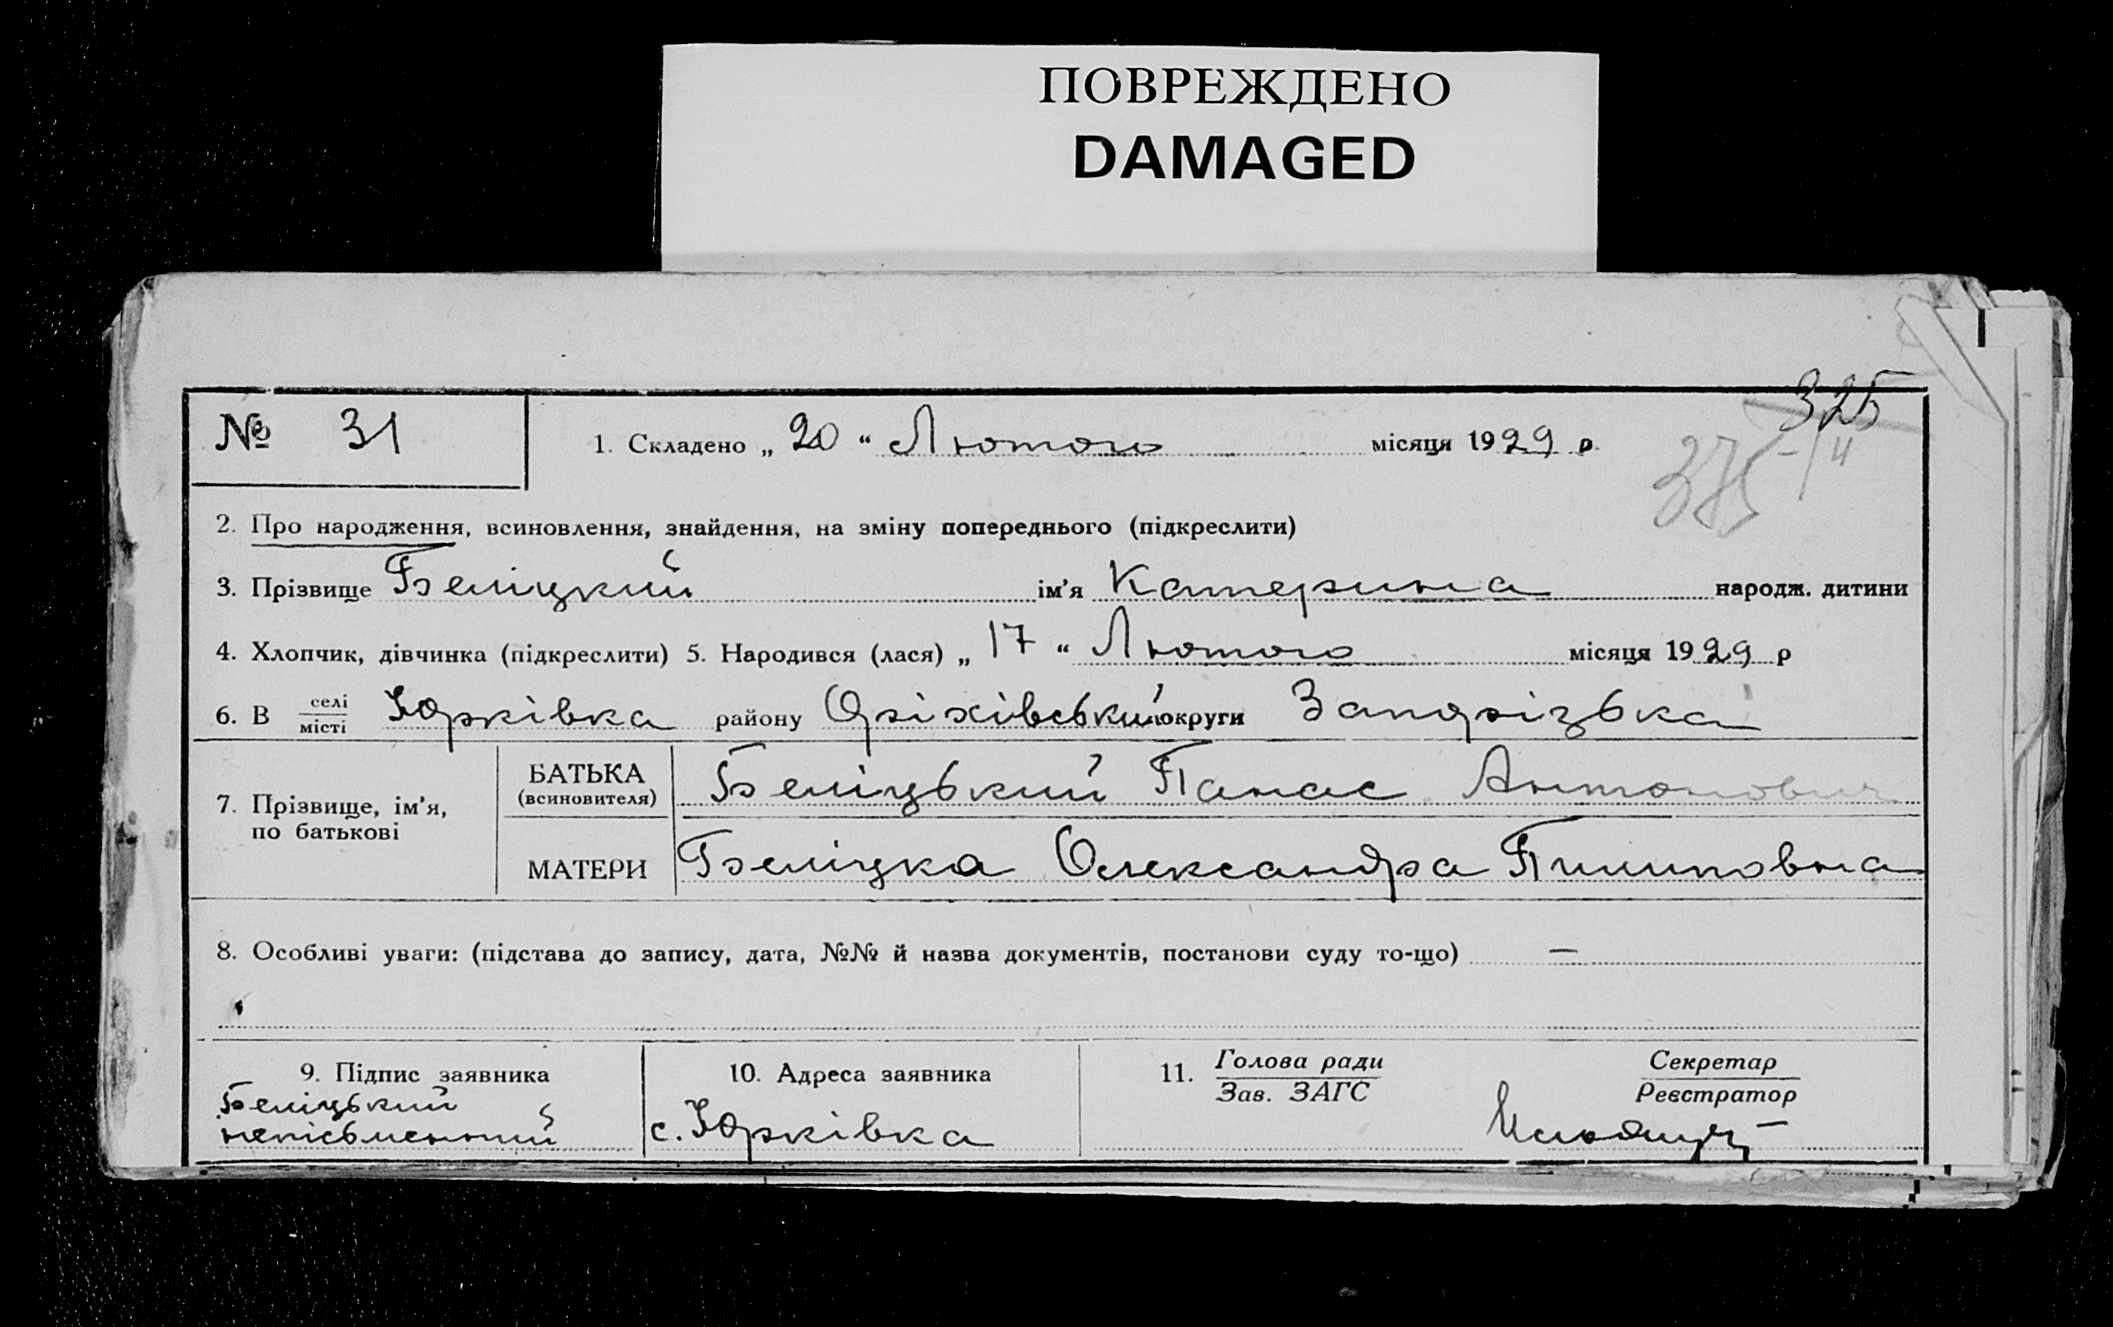 ПОВРЕЖДЕНО
DAMAGED
325
№ 31
1. Складено „ 20 “ Лютого місяця 1929 р.
375
2. Про народження, всиновлення, знайдення, на зміну попереднього (підкреслити)
3. Прізвище Беліцкий ім’я Катерина народж. дитини
4. Хлопчик, дівчинка (підкреслити) 5. Народився (лася) „ 17 “ Лютого місяця 1929 р
6. В селі місті Юрківка району Оріхівський округи Запорізька
7. Прізвище, ім’я, по батькові
БАТЬКА (всиновителя) Беліцький Панас Антонович
МАТЕРИ Беліцка Олександра Пилиповна
8. Особливі уваги: (підстава до запису, дата, №№ й назва документів, постанови суду то-що) —
9. Підпис заявника
Беліцький
непісьменний
10. Адреса заявника
с. Юрківка
11. Голова ради
Зав. ЗАГС
Секретар
Реєстратор